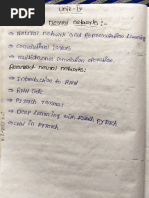 Unit-IV
Neural networks :-
⇒ Natural network and Representation Learning
⇒ Convolutional Layers
⇒ Multichannel convolution operation
Recurrent neural networks:-
⇒ Introduction to RNN
⇒ RNN code
⇒ Pytorch Tensors:
⇒ Deep Learning with Pytorch
⇒ CNN in Pytorch